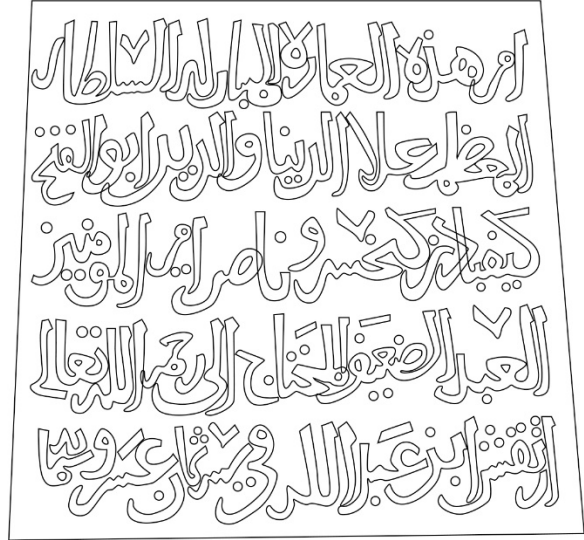 امر هذه العمارة المباركة السلطان
المعظم علا الدنيا والدين ابو الفتح
كيقباد بن كيخسرو ناصر امير المومنين
العبد الضعيف المحتاج الى رحمة الله تعالى
ابن عبد الله في سنة ثمان عشر